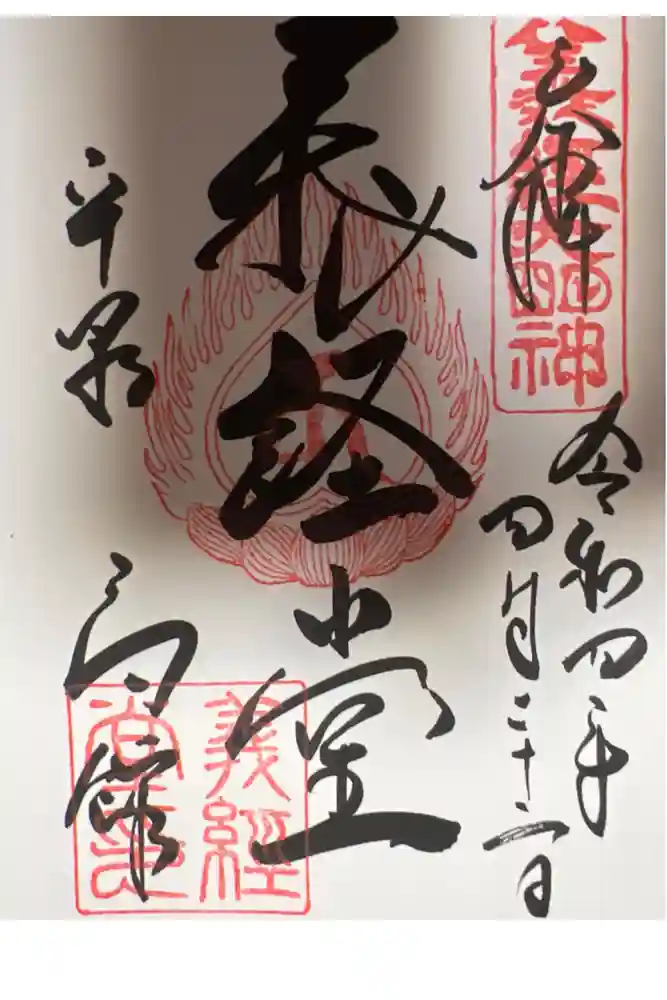 奉拝
義経大明神
令和四年
四月二十二日
義経堂
平泉
高館
義經